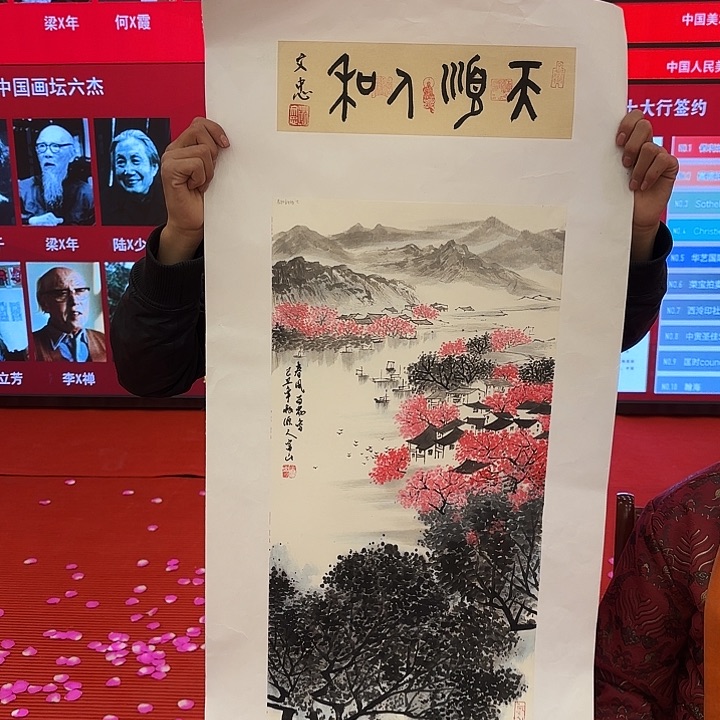 梁X年
何X霞
中国美
中国人民美
中国画坛六杰
十大行签约
梁X年
陆X少
立芳
李X禅
天顺人和
文忠
春风百花香
己丑年
NO.3 Sothe
NO.4 Christie
NO.5 华艺国际
NO.6 荣宝拍卖
NO.7 西泠印社
NO.8 中贸圣佳
NO.9 匡时coun
NO.10 瀚海